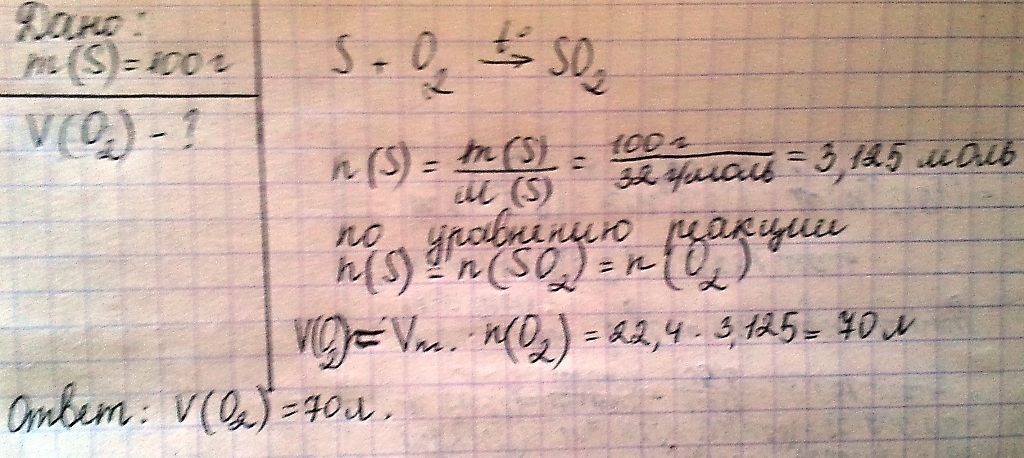 Дано:
m(S) = 100 г
V(O₂) - ?
S + O₂ →t° SO₂
n(S) = m(S)/M(S) = 100 г/32 г/моль = 3,125 моль
по уравнению реакции
n(S) = n(SO₂) = n(O₂)
V(O₂) = Vm. · n(O₂) = 22,4 · 3,125 = 70 л
Ответ: V(O₂) = 70 л.